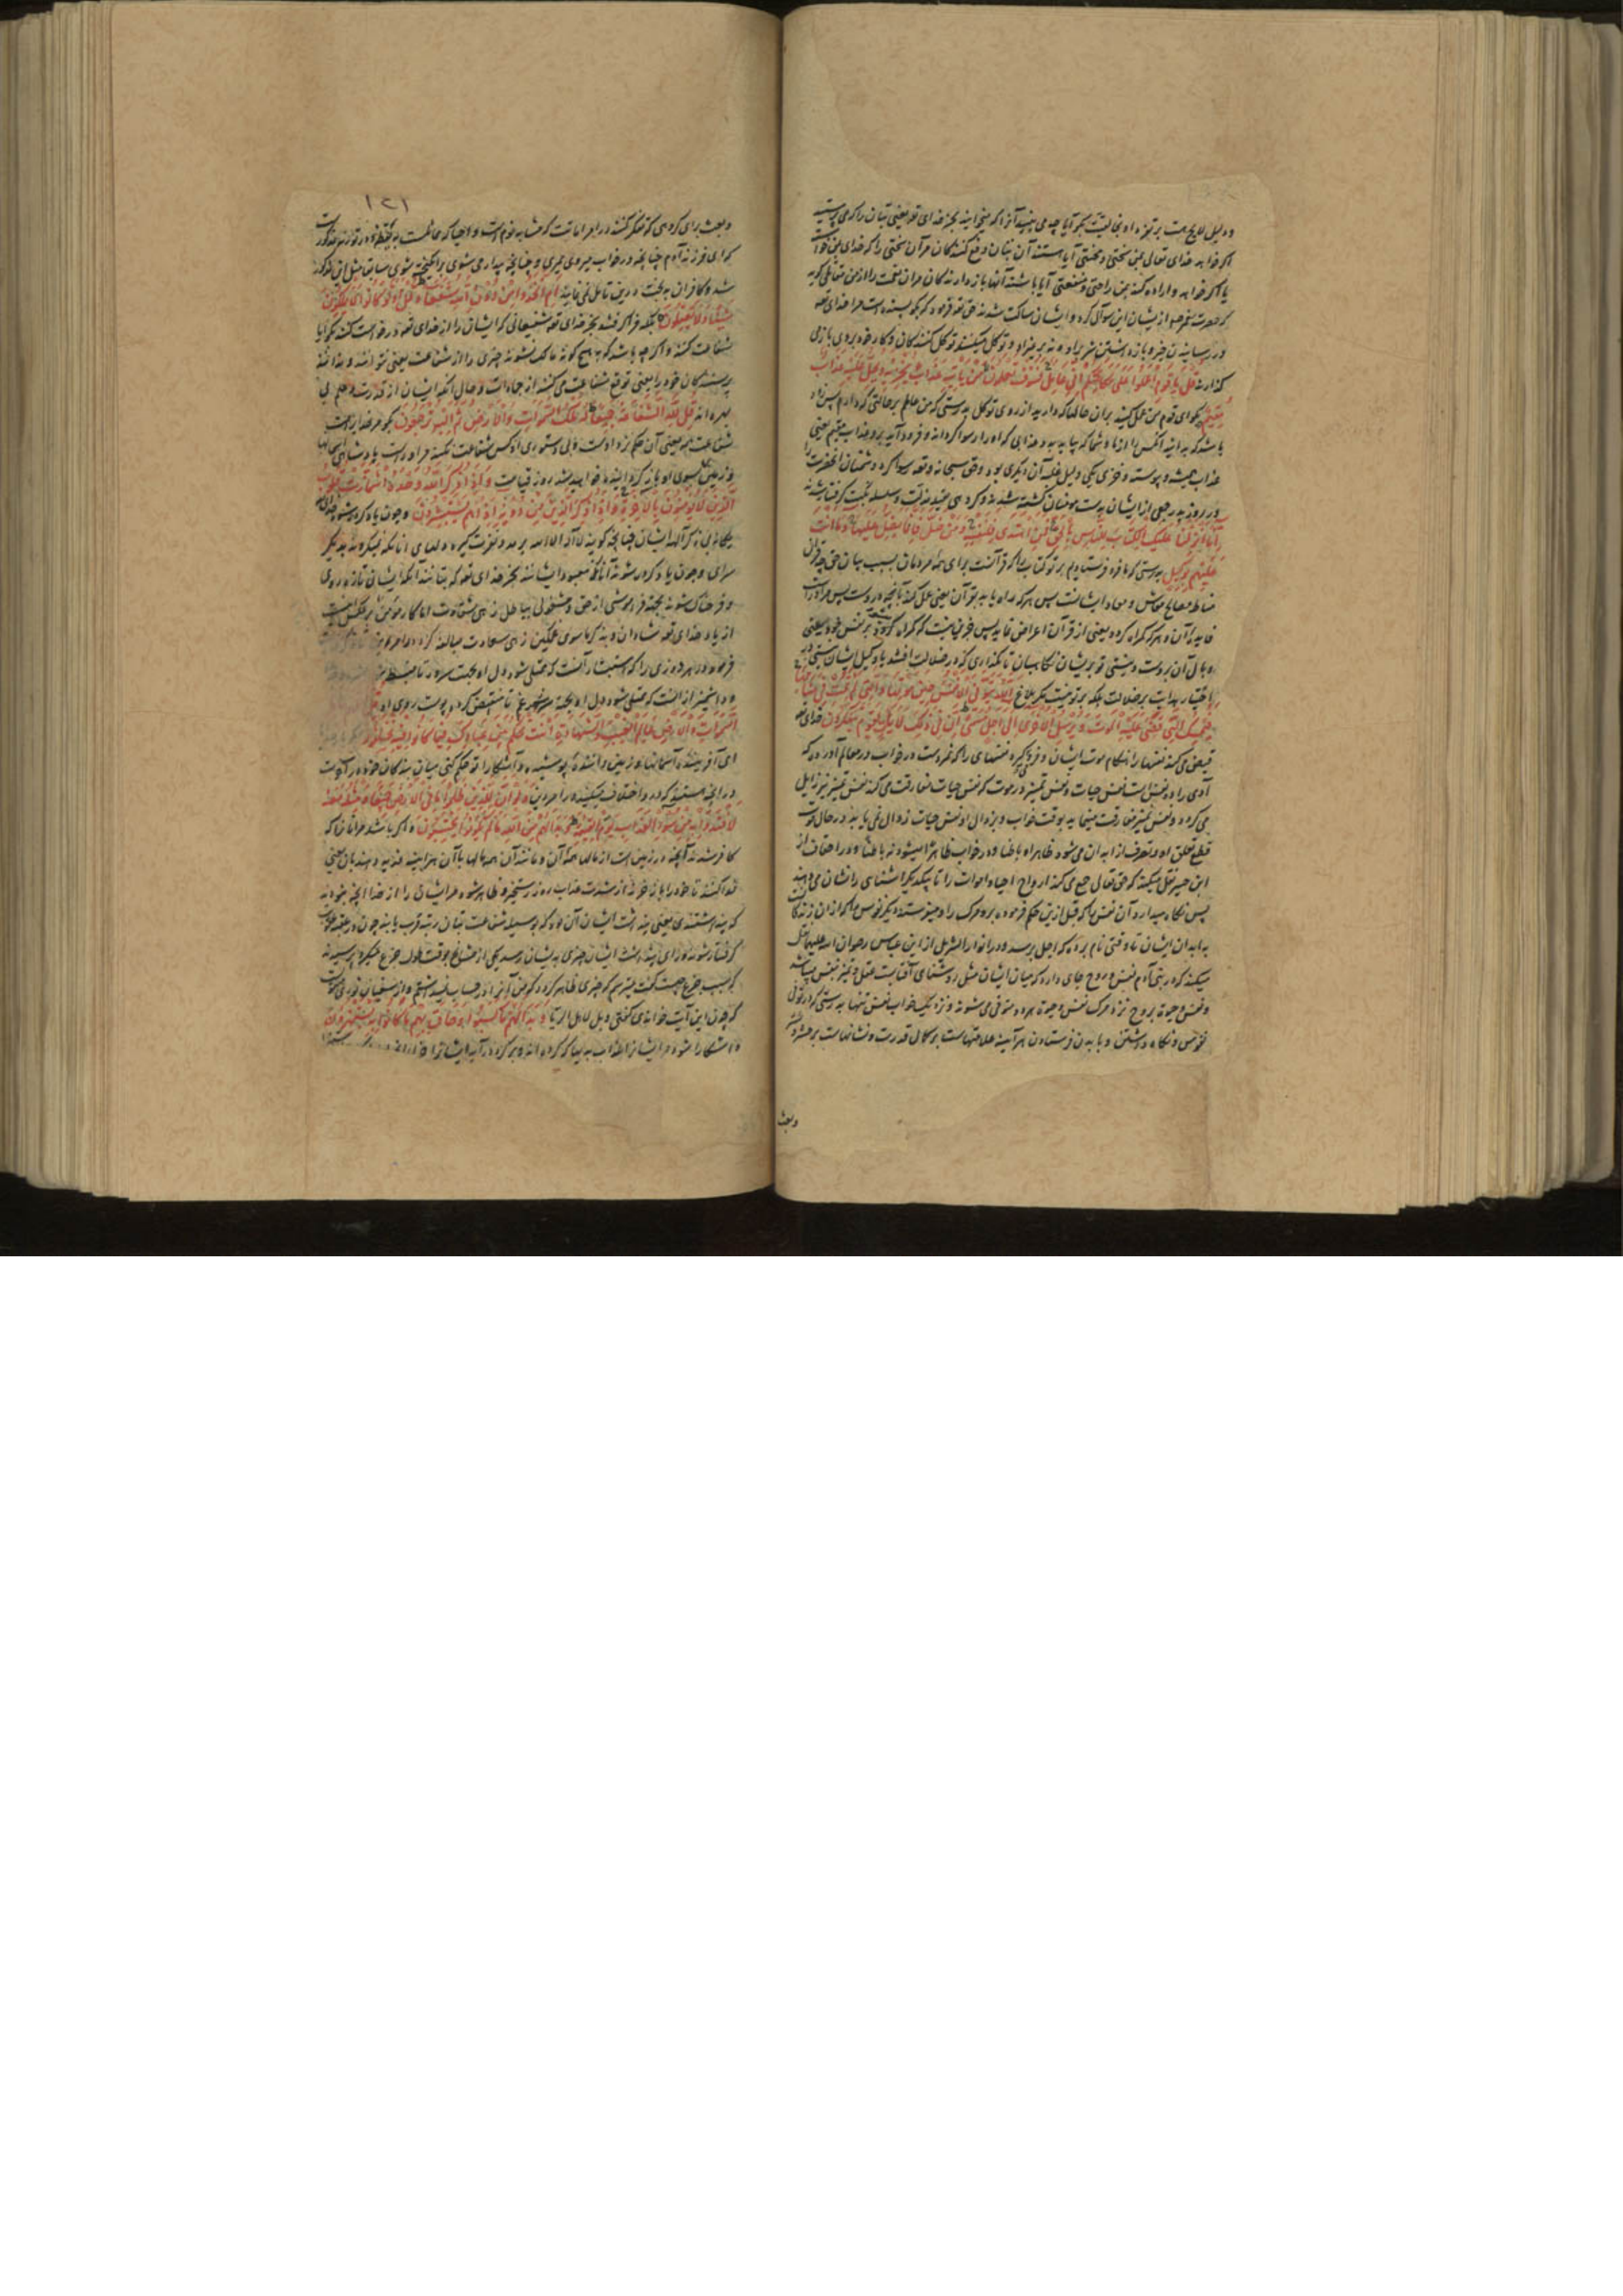 و دلیل لایح است بر تفرد او بخالقیت بگو آیا چه می بینید آنرا که میخوانید بجز خدای تعه یعنی بتان را که می پرستید
اگر خواهد خدای تعالی بمن سختی و محنتی آیا هستند آن بتان دفع کنندکان مر آن سختی را که خدای بمن خواسته
یا اگر خواهد و اراده کند بمن راحتی و منفعتی آیا باشند آنها بازدارندکان مر آن نعمت را از من
که حضرت پیغمبر صم از ایشان این سوال کرد و ایشان ساکت شدند حق تعه فرمود که بگو بسنده است مرا خدای تعه
در رسانیدن خیر و باز داشتن شر برو و نه بر غیر او توکل میکنند توکل کنندکان و کار خود بروی باز می
کذارند قُلْ يَا قَوْمِ اعْمَلُوا عَلَى مَكَانَتِكُمْ اِنِّي عَامِلٌ فَسَوْفَ تَعْلَمُونَ مَنْ يَأْتِيهِ عَذَابٌ يُخْزِيهِ وَيَحِلُّ عَلَيْهِ عَذَابٌ
مُقِيمٌ بگو ای قوم من عمل کنید بران حالها که دارید از روی توکل بدرستی که من عاملم بر حالتی که دارم پس زود
باشد که بدانید آنکس را از ما و شما که بیاید بدو عذابی که او را رسوا کرداند و فرود آید برو عذاب مقیم یعنی
عذاب همیشه و پیوسته و خزی یکی دلیل غلبه آن دیگری بود و حق سبحانه و تعه رسوا کرد دشمنان آنحضرت را
در روز بدر جمعی از ایشان بدست مومنان کشته شدند و کروهی بقید مذلت و سلسله نکبت کرفتار شدند
اِنَّا اَنْزَلْنَا عَلَيْكَ الْكِتَابَ لِلنَّاسِ بِالْحَقِّ فَمَنِ اهْتَدَى فَلِنَفْسِهِ وَمَنْ ضَلَّ فَاِنَّمَا يَضِلُّ عَلَيْهَا وَمَا اَنْتَ
عَلَيْهِمْ بِوَكِيلٍ بدرستی که ما فرو فرستادیم بر تو کتاب را که قرآنست برای همه مردمان بسبب بیان حق
مناط مصالح معاش و معاد ایشانست پس هر که راه یابد بقرآن یعنی عمل کند بآنچه دروست پس مر او راست
فایده آن و هر که گمراه کردد یعنی از قرآن اعراض نماید پس جز این نیست که گمراه کردد بر نفس خود یعنی
وبال آن بروست و نیستی تو بر ایشان نکاهبان تا نکذاری که در ضلالت افتند یا وکیل ایشان نیستی
اللَّهُ يَتَوَفَّى الْاَنْفُسَ حِينَ مَوْتِهَا وَالَّتِي لَمْ تَمُتْ فِي مَنَامِهَا
فَيُمْسِكُ الَّتِي قَضَى عَلَيْهَا الْمَوْتَ وَيُرْسِلُ الْاُخْرَى اِلَى اَجَلٍ مُسَمًّى اِنَّ فِي ذَلِكَ لَآيَاتٍ لِقَوْمٍ يَتَفَكَّرُونَ خدای تعه
قبض می کند نفسها را بهنکام موت ایشان و فرو می کیرد نفسهای را که نمرده است در خواب در معالم آورده که
آدمی را دو نفس است نفس حیات و نفس تمییز در موت که نفس حیات مفارقت می کند نفس تمییز نیز زایل
می کردد و نفس تمییز مفارقت مینماید بوقت خواب و بزوال او نفس حیات زوال نمی یابد در حال موت
قطع تعلق او و تصرف از ابدان می شود ظاهرا و باطنا و در خواب ظاهرا میشود نه باطنا
حق تعالی جمع می کند ارواح احیا و اموات را تا بیکدیکر آشنای
پس نکاه میدارد آن نفس را که قبل ازین حکم فرموده برو مرک را و میفرستد دیکر نفوس را
به ابدان ایشان تا وقتی نام برده که اجل برسد و در انوار التنزیل از ابن عباس رضوان الله علیهما نقل
میکند که در بنی آدم نفس و روح جای دارد که میان ایشان مثل روشنای آفتاب است عقل و تمیز بنفس
و نفس و حیوة بروح نزد مرک نفس و حیوة هر دو متوفی می شوند و نزدیک خواب نفس تنها بدرستی که
نفوس و نکاه داشتن و با بدن فرستادن هرآینه علامتهاست بر کمال قدرت و نشانهاست بر حشر و نشر
وبعث
۱۴۱
وبعث برای کروهی که تفکر کنند در امر اماتت که مشابه نوم است و احیا که مماثلست به یقظه و در توریة مذکور است
که ای فرزند آدم چنانچه در خواب میروی میمیری و چنانچه بیدار می شوی برانکیخته شوی
شد و کافران بحجت درین تامل نمی نمایند اَمِ اتَّخَذُوا مِنْ دُونِ اللَّهِ شُفَعَاءَ قُلْ اَوَلَوْ كَانُوا لَا يَمْلِكُونَ
شَيْئًا وَلَا يَعْقِلُونَ بلکه فرا کرفتند بجز خدای تعه شفیعانی که ایشان را از خدای تعه درخواست کنند بگو آیا
شفاعت کنند و اگر چه باشد که به هیچ کونه مالک نشوند چیزی را از شفاعت یعنی نتوانند و ندانند
پرستندکان خود را یعنی توقع شفاعت می کنند از جمادات و حال آنکه ایشان از قدرت و علم بی
بهره اند قُلْ لِلَّهِ الشَّفَاعَةُ جَمِيعًا لَهُ مُلْكُ السَّمَوَاتِ وَالْاَرْضِ ثُمَّ اِلَيْهِ تُرْجَعُونَ بگو مر خدایراست
شفاعت همه یعنی آن حکم نزد اوست و بی دستوری او کس شفاعت نکند مر او راست پادشاهی آسمانها
و زمین پس بسوی او باز کردانیده خواهید شد روز قیامت وَاِذَا ذُكِرَ اللَّهُ وَحْدَهُ اشْمَأَزَّتْ قُلُوبُ
الَّذِينَ لَا يُؤْمِنُونَ بِالْآخِرَةِ وَاِذَا ذُكِرَ الَّذِينَ مِنْ دُونِهِ اِذَا هُمْ يَسْتَبْشِرُونَ و چون یاد کرده شود خدای
یکانه بی ذکر آلهه ایشان چنانچه کویند لا اله الا الله برمد و نفرت کیرد دلهای آنانکه نمیکروند بدیکر
سرای و چون یاد کرده شوند آنانکه معبود ایشانند بجز خدای تعه که بتانند آنکه ایشان تازه روی
و فرحناک شوند بجهة فراموشی از حق و مشغولی بباطل زهی شقاوت اما کار مؤمن بر عکس اینست
از یاد خدای تعه شادان و بذکر ماسوی غمکین زهی سعادت
استبشار آنست که ممتلی شود دل او بجهت سرور تا منبسط
و اشمیزاز آنست که ممتلی شود دل او بجهة غم تا منقبض کردد پوست روی او قُلِ
السَّمَوَاتِ وَالْاَرْضِ عَالِمَ الْغَيْبِ وَالشَّهَادَةِ اَنْتَ تَحْكُمُ بَيْنَ عِبَادِكَ فِيمَا كَانُوا فِيهِ يَخْتَلِفُونَ
ای آفریننده آسمانها و زمین و داننده پوشیده و آشکارا تو حکم کنی میان بندکان خود
در آنچه هستند که در او اختلاف میکنند از امر دین وَلَوْ اَنَّ لِلَّذِينَ ظَلَمُوا مَا فِي الْاَرْضِ جَمِيعًا وَمِثْلَهُ مَعَهُ
لَافْتَدَوْا بِهِ مِنْ سُوءِ الْعَذَابِ يَوْمَ الْقِيمَةِ وَبَدَا لَهُمْ مِنَ اللَّهِ مَا لَمْ يَكُونُوا يَحْتَسِبُونَ و اگر باشد مر آنانرا که
کافر شدند آنچه در زمین است از مالها همه آن و مانند آن همه مالها با آن هرآینه فدیه دهند بآن یعنی
فدا کنند تا خود را باز خرند از شدت عذاب روز رستخیز و ظاهر شود مر ایشان را از خدا آنچه نبودند
که پنداشتندی یعنی پنداشت ایشان آن بود که بوسیله شفاعت بتان رتبه قرب یابند
کرفتار شوند ایشان چیزی بدیشان رسد یکی از مشایخ بوقت حلول جزع میکرد پرسیدند
که سبب جزع چیست کفت میترسم که چیزی ظاهر کردد که من آنرا در حساب نمیداشتم و از سفیان ثوری منقولست
که چون این آیت خواندی کفتی ویل لاهل الریا وَبَدَا لَهُمْ سَيِّئَاتُ مَا كَسَبُوا وَحَاقَ بِهِمْ مَا كَانُوا بِهِ يَسْتَهْزِئُونَ
و آشکارا شود مر ایشانرا